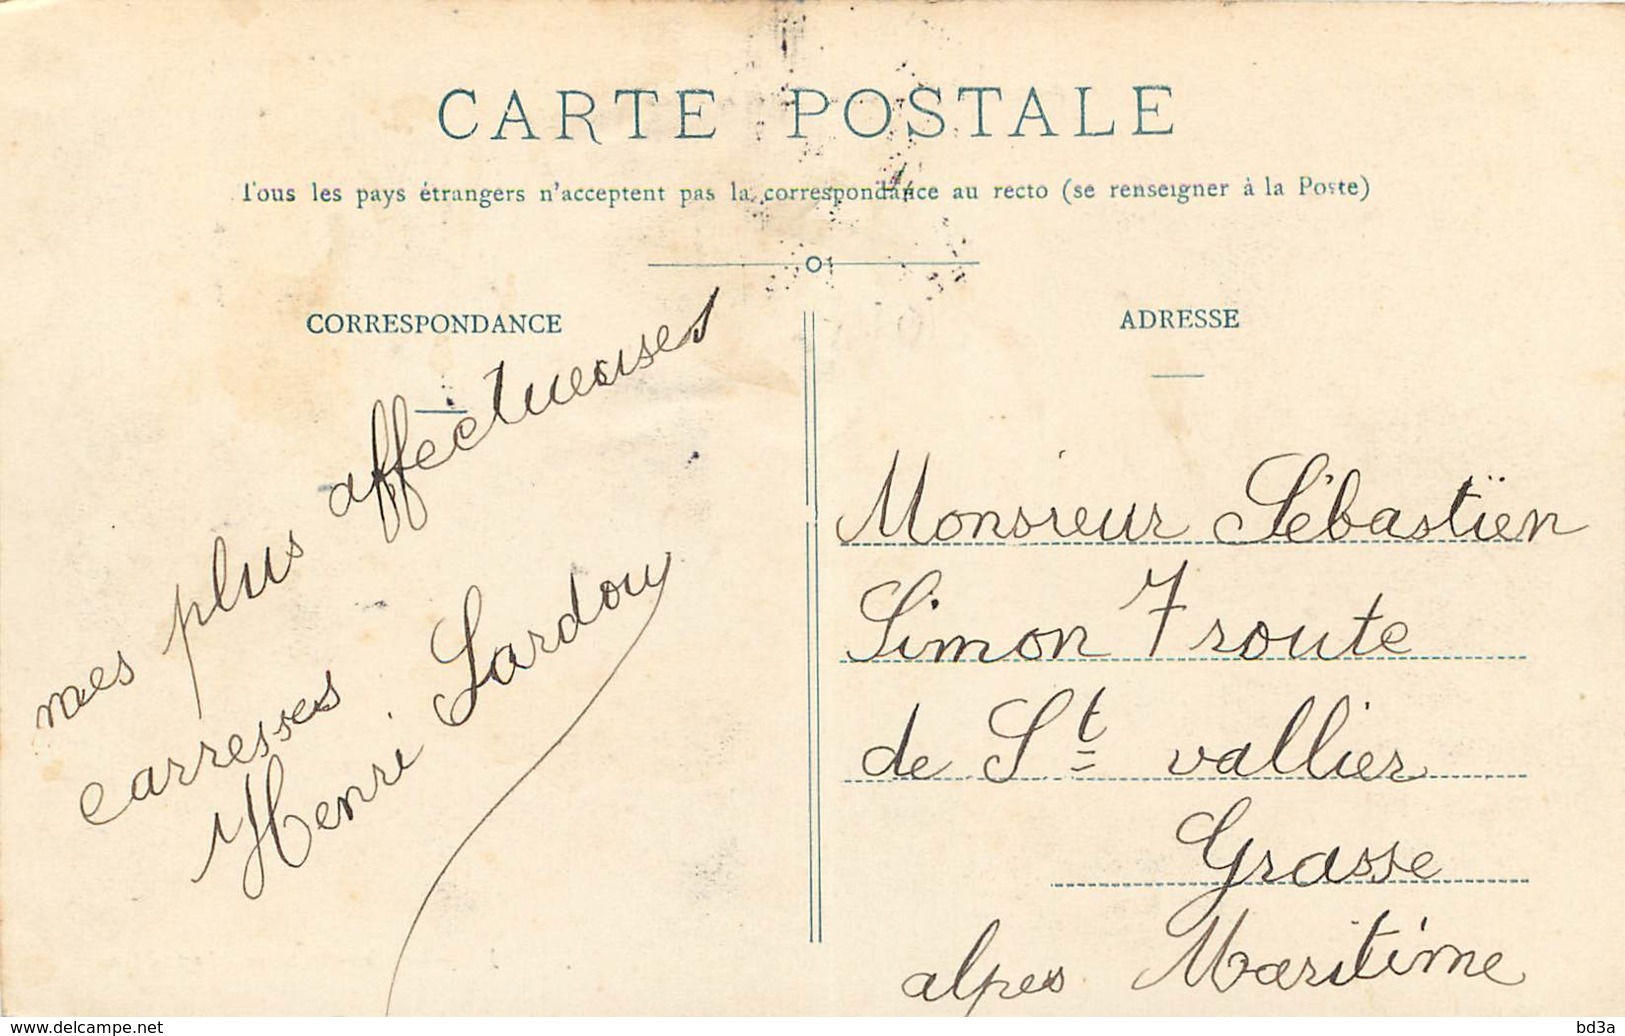 CARTE POSTALE
Tous les pays étrangers n'acceptent pas la correspondance au recto (se renseigner à la Poste)
CORRESPONDANCE
mes plus affectueuses
carresses
Henri Sardou
ADRESSE
Monsieur Sébastïen
Simon 7 route
de St vallier
Grasse
alpes Maritime
www.delcampe.net
bd3a